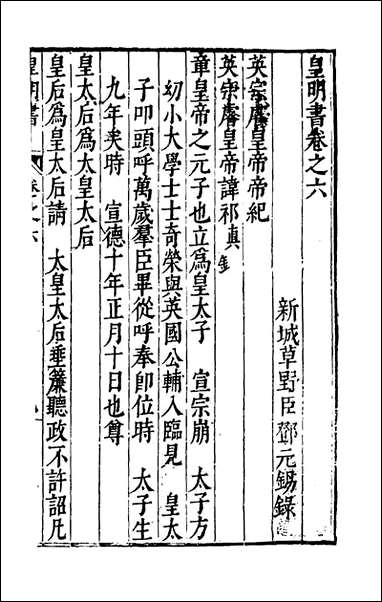 皇明書卷之六
新城草野臣鄧元錫錄
英宗睿皇帝帝紀
英宗睿皇帝諱祁真
章皇帝之元子也立爲皇太子　宣宗崩　太子方
幼小大學士士奇榮與英國公輔入臨見　皇太
子叩頭呼萬歲羣臣畢從呼奉即位時　太子生
九年矣時　宣德十年正月十日也尊
皇太后爲太皇太后
皇后爲皇太后請　太皇太后垂簾聽政不許詔凡
皇明書　卷之六